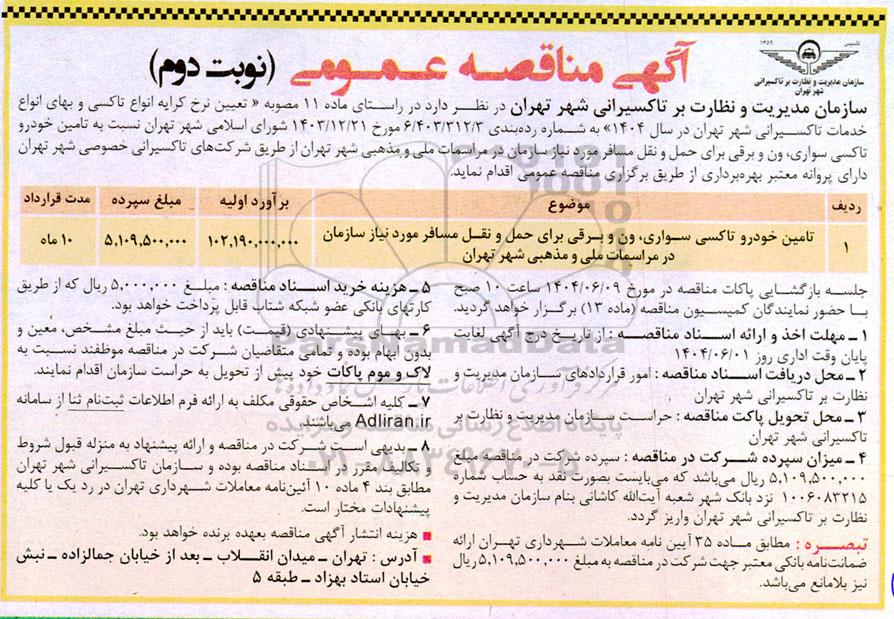 تأسیس ۱۳۵۹
سازمان مدیریت و نظارت بر تاکسیرانی
شهر تهران
آگهی مناقصه عمومی (نوبت دوم)
سازمان مدیریت و نظارت بر تاکسیرانی شهر تهران در نظر دارد در راستای ماده ۱۱ مصوبه « تعیین نرخ کرایه انواع تاکسی و بهای انواع
خدمات تاکسیرانی شهر تهران در سال ۱۴۰۴» به شماره رده‌بندی ۶/۴۰۳/۳۱۲/۳ مورخ ۱۴۰۳/۱۲/۲۱ شورای اسلامی شهر تهران نسبت به تامین خودرو
تاکسی سواری، ون و برقی برای حمل و نقل مسافر مورد نیاز سازمان در مراسمات ملی و مذهبی شهر تهران از طریق شرکت‌های تاکسیرانی خصوصی شهر تهران
دارای پروانه معتبر بهره‌برداری از طریق برگزاری مناقصه عمومی اقدام نماید.
ردیف موضوع برآورد اولیه مبلغ سپرده مدت قرارداد
۱ تامین خودرو تاکسی سواری، ون و برقی برای حمل و نقل مسافر مورد نیاز سازمان ۱۰۲,۱۹۰,۰۰۰,۰۰۰ ۵,۱۰۹,۵۰۰,۰۰۰ ۱۰ ماه
در مراسمات ملی و مذهبی شهر تهران
جلسه بازگشایی پاکات مناقصه در مورخ ۱۴۰۴/۰۶/۰۹ ساعت ۱۰ صبح
با حضور نمایندگان کمیسیون مناقصه (ماده ۱۳) برگزار خواهد گردید.
۱ ـ مهلت اخذ و ارائه اسناد مناقصه : از تاریخ درج آگهی لغایت
پایان وقت اداری روز ۱۴۰۴/۰۶/۰۱
۲ ـ محل دریافت اسناد مناقصه : امور قراردادهای سازمان مدیریت و
نظارت بر تاکسیرانی شهر تهران
۳ ـ محل تحویل پاکت مناقصه : حراست سازمان مدیریت و نظارت بر
تاکسیرانی شهر تهران
۴ ـ میزان سپرده شرکت در مناقصه : سپرده شرکت در مناقصه مبلغ
۵,۱۰۹,۵۰۰,۰۰۰ ریال می‌باشد که می‌بایست بصورت نقد به حساب شماره
۱۰۰۶۰۸۳۲۱۵ نزد بانک شهر شعبه آیت‌الله کاشانی بنام سازمان مدیریت و
نظارت بر تاکسیرانی شهر تهران واریز گردد.
تبصره : مطابق ماده ۳۵ آیین نامه معاملات شهرداری تهران ارائه
ضمانت‌نامه بانکی معتبر جهت شرکت در مناقصه به مبلغ ۵,۱۰۹,۵۰۰,۰۰۰ ریال
نیز بلامانع می‌باشد.
۵ ـ هزینه خرید اسناد مناقصه : مبلغ ۵,۰۰۰,۰۰۰ ریال که از طریق
کارتهای بانکی عضو شبکه شتاب قابل پرداخت خواهد بود.
۶ ـ بهای پیشنهادی (قیمت) باید از حیث مبلغ مشخص، معین و
بدون ابهام بوده و تمامی متقاضیان شرکت در مناقصه موظفند نسبت به
لاک و موم پاکات خود پیش از تحویل به حراست سازمان اقدام نمایند.
۷ ـ کلیه اشخاص حقوقی مکلف به ارائه فرم اطلاعات ثبت‌نام ثنا از سامانه
Adliran.ir می‌باشند.
۸ ـ بدیهی است شرکت در مناقصه و ارائه پیشنهاد به منزله قبول شروط
و تکالیف مقرر در اسناد مناقصه بوده و سازمان تاکسیرانی شهر تهران
مطابق بند ۴ ماده ۱۰ آئین‌نامه معاملات شهرداری تهران در رد یک یا کلیه
پیشنهادات مختار است.
هزینه انتشار آگهی مناقصه بعهده برنده خواهد بود.
آدرس : تهران ـ میدان انقلاب ـ بعد از خیابان جمالزاده ـ نبش
خیابان استاد بهزاد ـ طبقه ۵
ParsNamadData